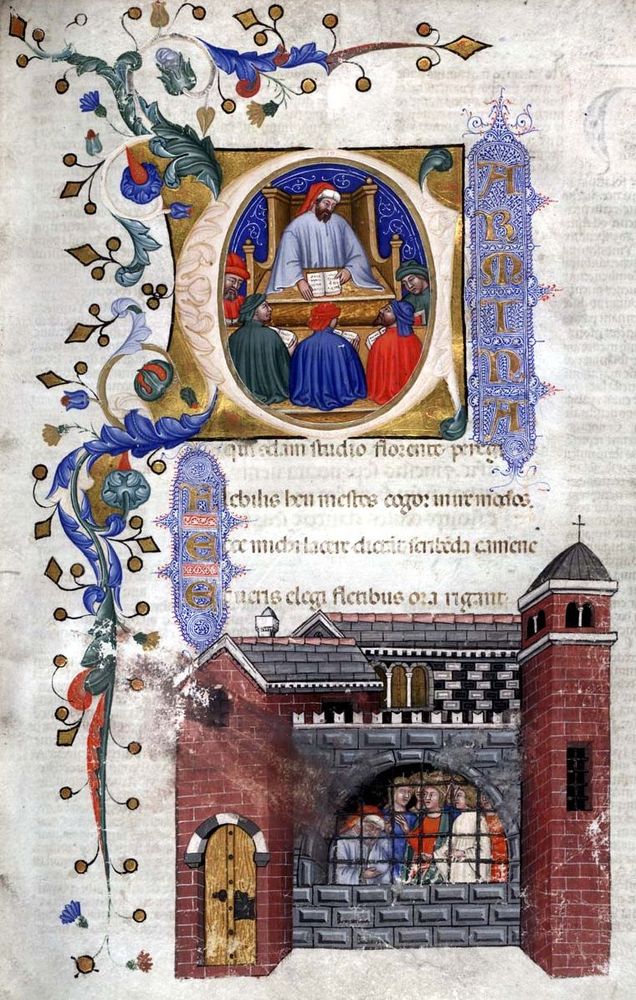 CARMINA
qui q̄dam studio florente pereg
Flebilis heu mestos cogor inire modos.
Ecce michi lacere dictāt scribēda camene
Et ueris elegi fletibus ora rigant.